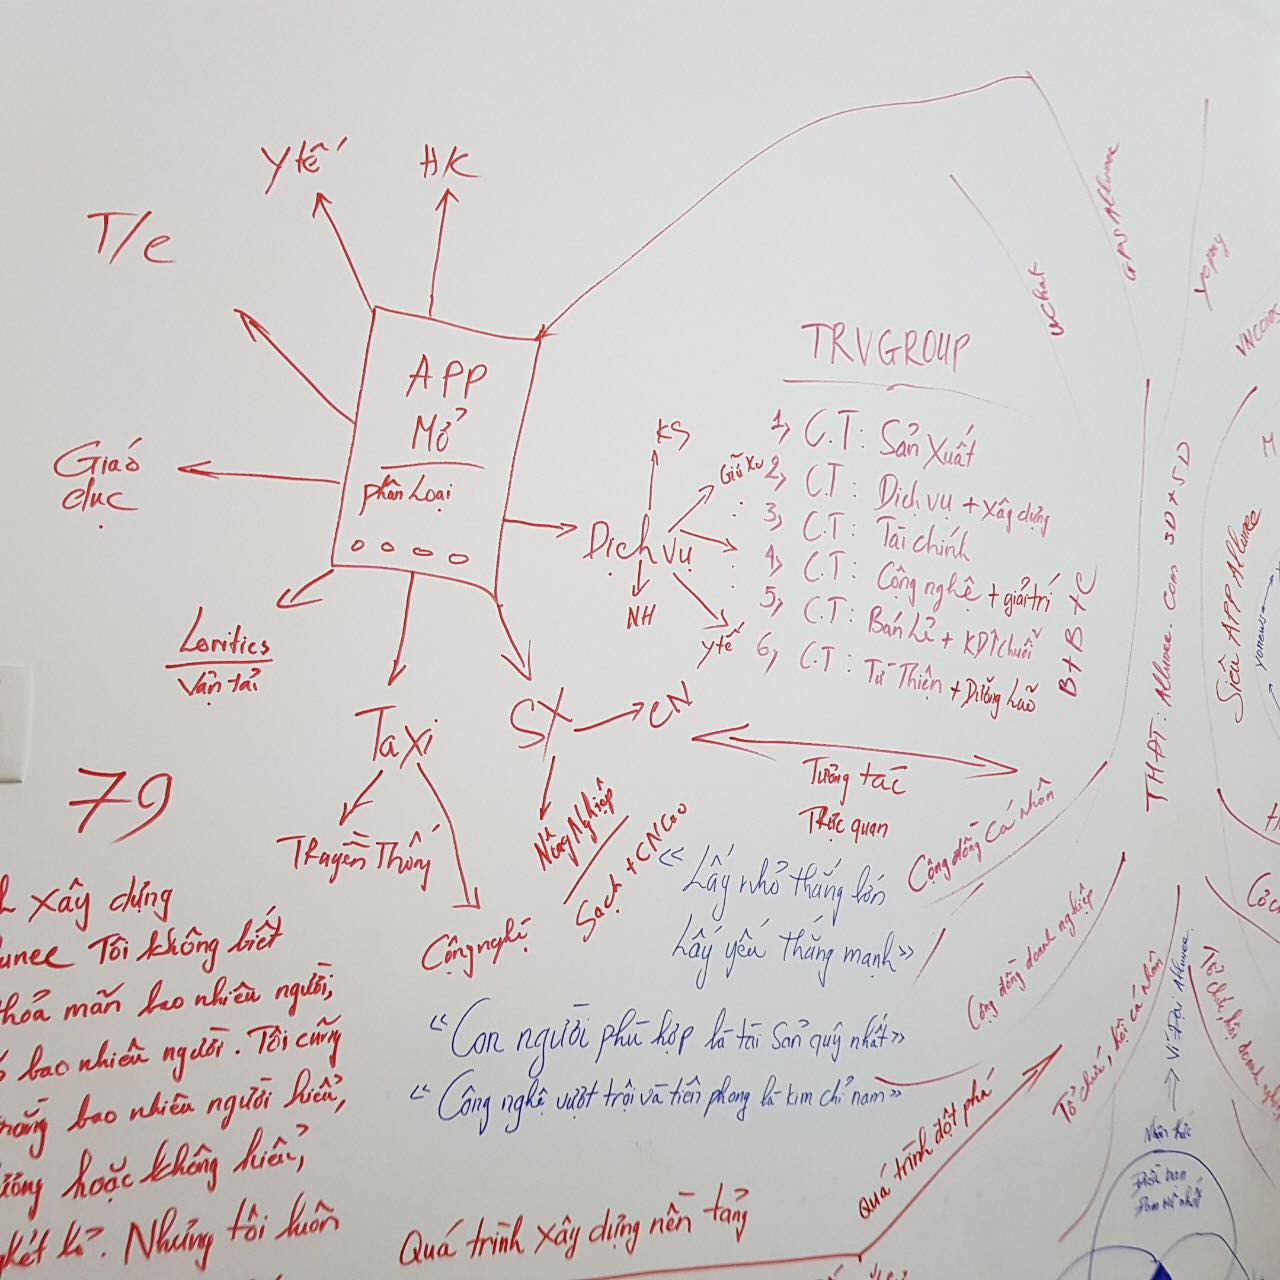 Y tế
HK
T/c
APP
Mở
phân Loại
Giáo
dục
Loritics
Vận tải
Taxi
Truyền Thống
Công nghệ
SX
CN
Nông Nghiệp
Sạch + CN Cao
Dịch vụ
KS
NH
Y tế
TRVGROUP
1, C.T: Sản Xuất
2, C.T: Dịch vụ + Xây dựng
3, C.T: Tài chính
4, C.T: Công nghệ + giải trí
5, C.T: Bán Lẻ + KDT chuỗi
6, C.T: Từ Thiện + Dưỡng Lão
B+B+C
Tương tác
Trực quan
UChat
GPS Allunee
VNCOINS
THĐT: Allunee.Com 3D+5D
Siêu APP Allunee
79
xây dựng
unee Tôi không biết
thỏa mãn bao nhiêu người,
bao nhiêu người. Tôi cũng
bao nhiêu người hiểu,
hoặc không hiểu,
Nhưng tôi luôn
"Lấy nhỏ thắng lớn
Lấy yếu thắng mạnh"
"Con người phù hợp là tài sản quý nhất"
"Công nghệ vượt trội và tiên phong là kim chỉ nam"
Cộng đồng Cá nhân
Cộng đồng doanh nghiệp
Tổ chức, hội cá nhân
Vĩ Đại Allunee.
Nhận thức
Quá trình đột phá
Quá trình xây dựng nền tảng